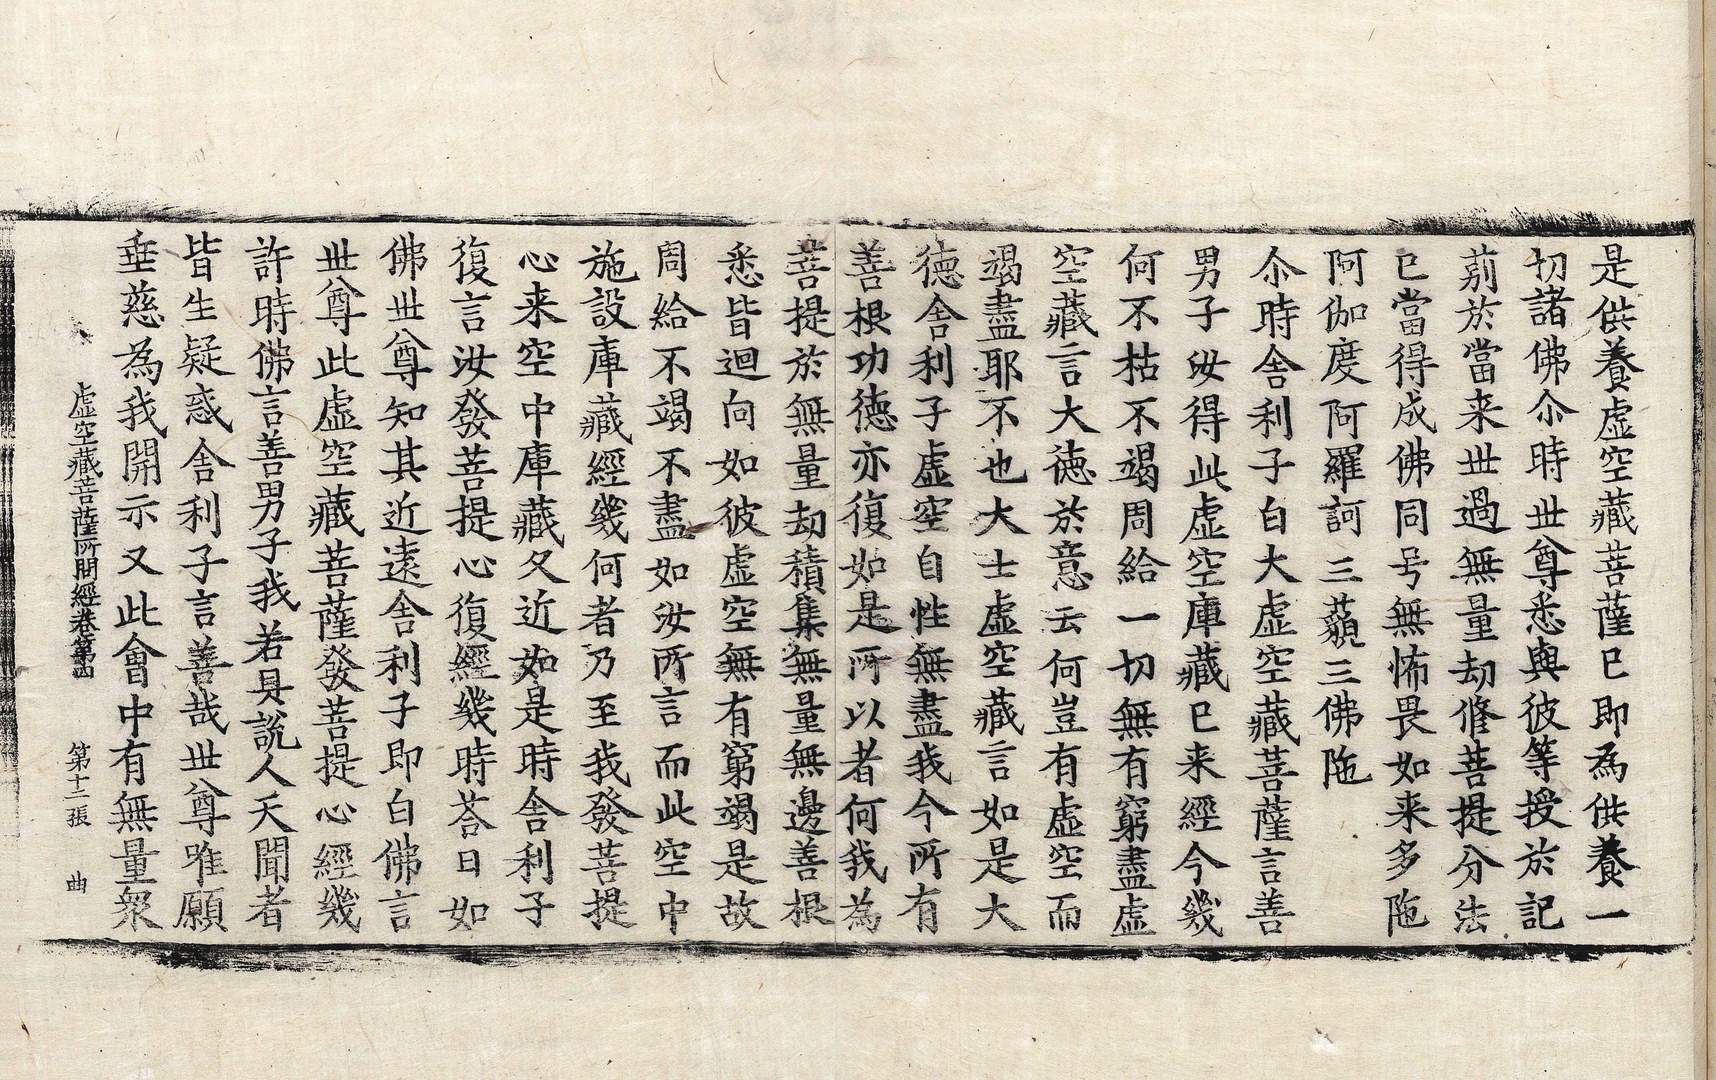 是供養虛空藏菩薩已即為供養一
切諸佛尒時世尊悉與彼等授於記
莂於當来世過無量劫修菩提分法
已當得成佛同号無怖畏如来多陁
阿伽度阿羅訶三藐三佛陁
尒時舍利子白大虛空藏菩薩言善
男子汝得此虛空庫藏已来經今幾
何不枯不竭周給一切無有窮盡虛
空藏言大德於意云何豈有虛空而
竭盡耶不也大士虛空藏言如是大
德舍利子虛空自性無盡我今所有
善根功德亦復如是所以者何我為
菩提於無量劫積集無量無邊善根
悉皆迴向如彼虛空無有窮竭是故
周給不竭不盡如汝所言而此空中
施設庫藏經幾何者乃至我發菩提
心来空中庫藏久近如是時舍利子
復言汝發菩提心復經幾時荅曰如
佛世尊知其近遠舍利子即白佛言
世尊此虛空藏菩薩發菩提心經幾
許時佛言善男子我若具說人天聞者
皆生疑惑舍利子言善哉世尊唯願
垂慈為我開示又此會中有無量衆
虛空藏菩薩所問經卷第四 第十二張 曲